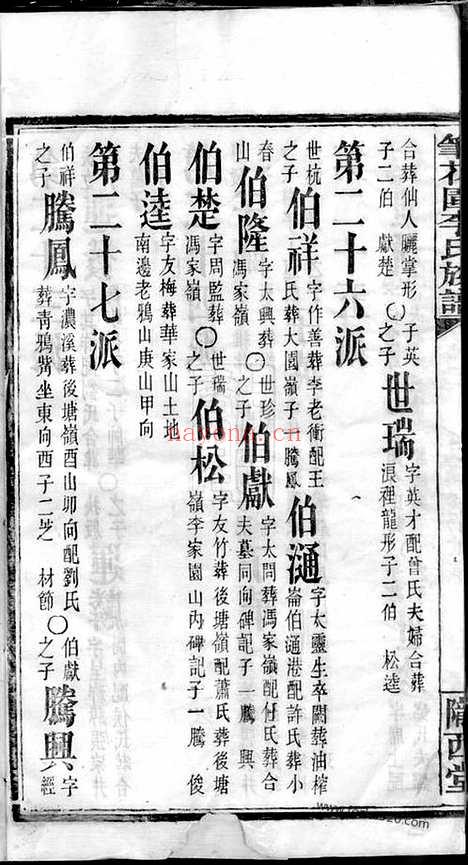 園李氏族譜
隴西堂
合葬仙人曬掌形○子英
子二伯 獻楚 ○之子
世瑞
字英才配曾氏夫婦合葬
浪裡龍形子二伯 松逵
第二十六派
世杭
之子
伯祥
字作善葬李老衝配王
氏葬大園嶺子 騰鳳
伯通
字太靈生卒闕葬油榨
崙伯通港配許氏葬小
春
山
伯隆
字太興葬○世珍
馮家嶺 之子
伯獻
字太問葬馮家嶺配任氏合
夫墓同向碑記子一騰興
伯楚
字周監葬○世瑞
馮家嶺 之子
伯松
字友竹葬後塘嶺配蕭氏葬後塘
嶺李家園山內碑記子一騰俊
伯逵
字友梅葬華家山土地
南邊老鴉山庚山甲向
第二十七派
伯祥
之子
騰鳳
字濃溪葬後塘嶺酉山卯向配劉氏○伯獻
葬青鴉嘴坐東向西子二芝 材節 之子
騰興
字
經
nayong.cn.com